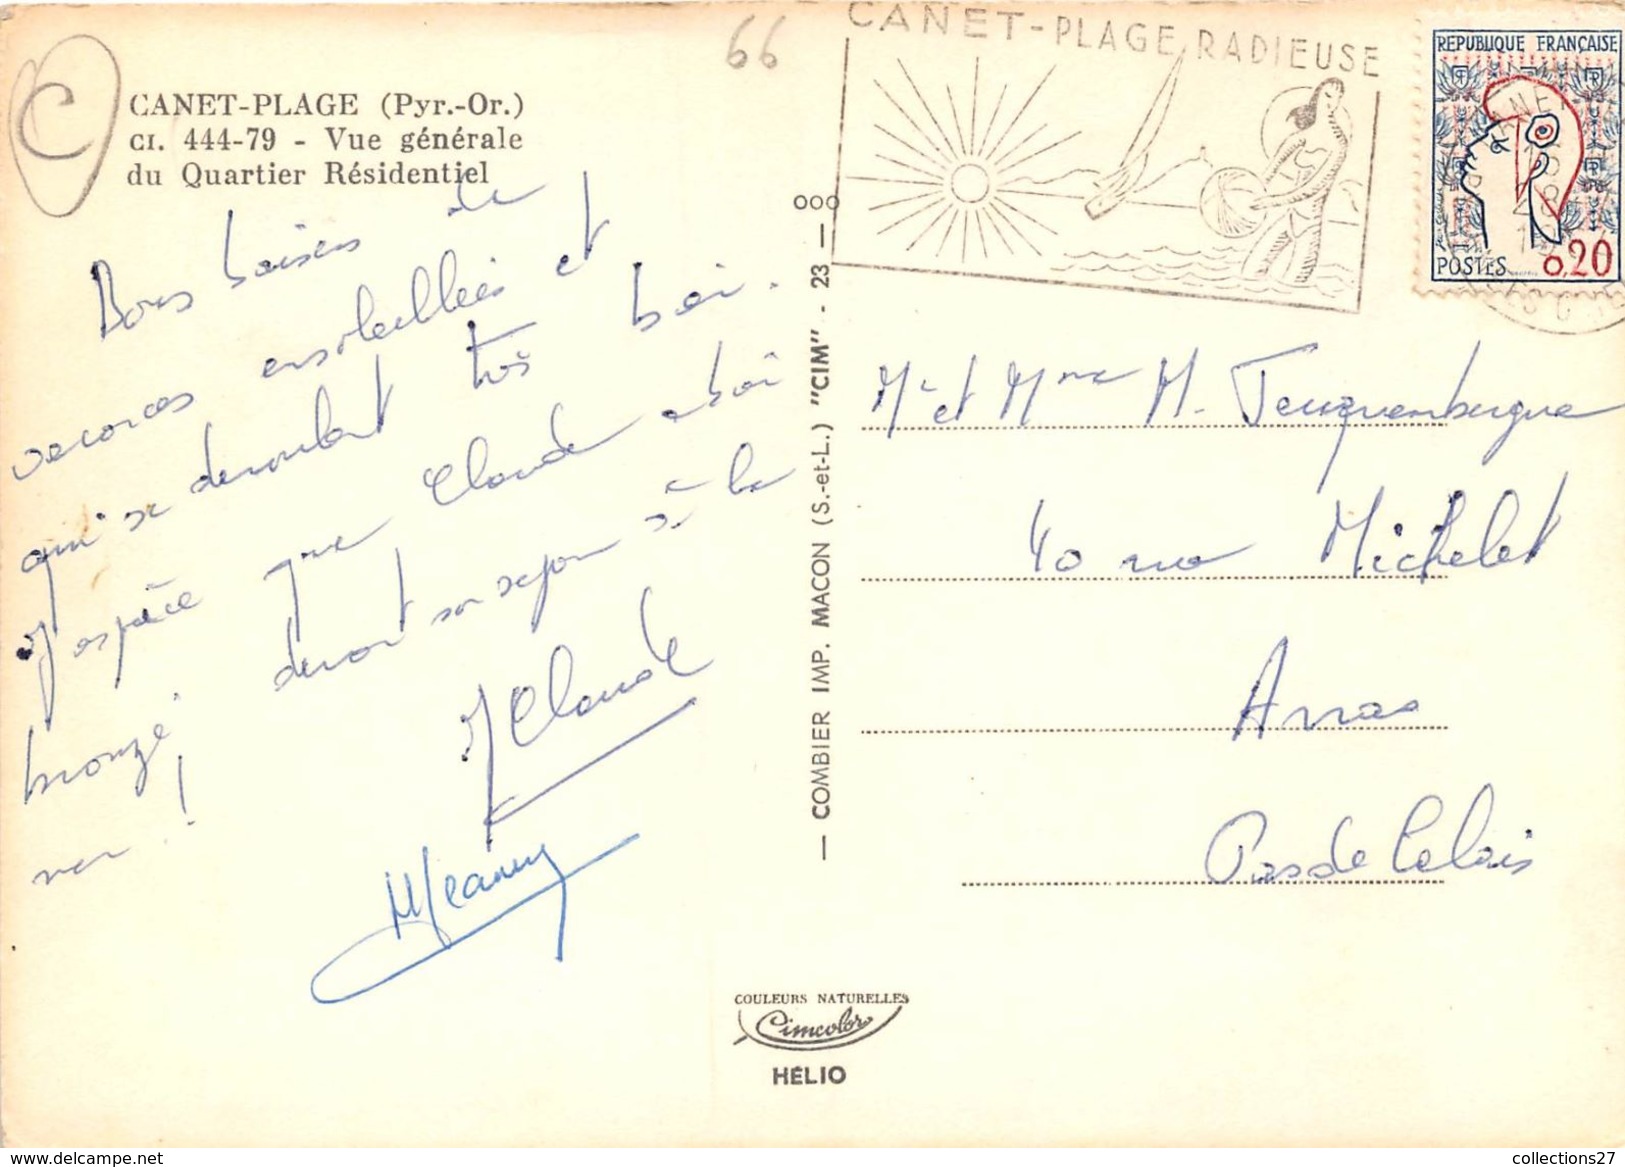 66
C
CANET-PLAGE (Pyr.-Or.)
CI. 444-79 - Vue générale
du Quartier Résidentiel
Bons baisers de
vacances ensoleillées et
qui se déroulent très bien.
J'espère que Claude sera
bronzé durant son séjour à la
mer !
J Claude
MJeanny
CANET-PLAGE RADIEUSE
REPUBLIQUE FRANÇAISE
RF
POSTES 0,20
Mr et Mme M.
40 rue Michelet
Arras
Pas de Calais
— COMBIER IMP. MACON (S.-et-L.) "CIM" - 23 — ooo
COULEURS NATURELLES
Cimcolor
HÉLIO
https://www.delcampe.net
collections27